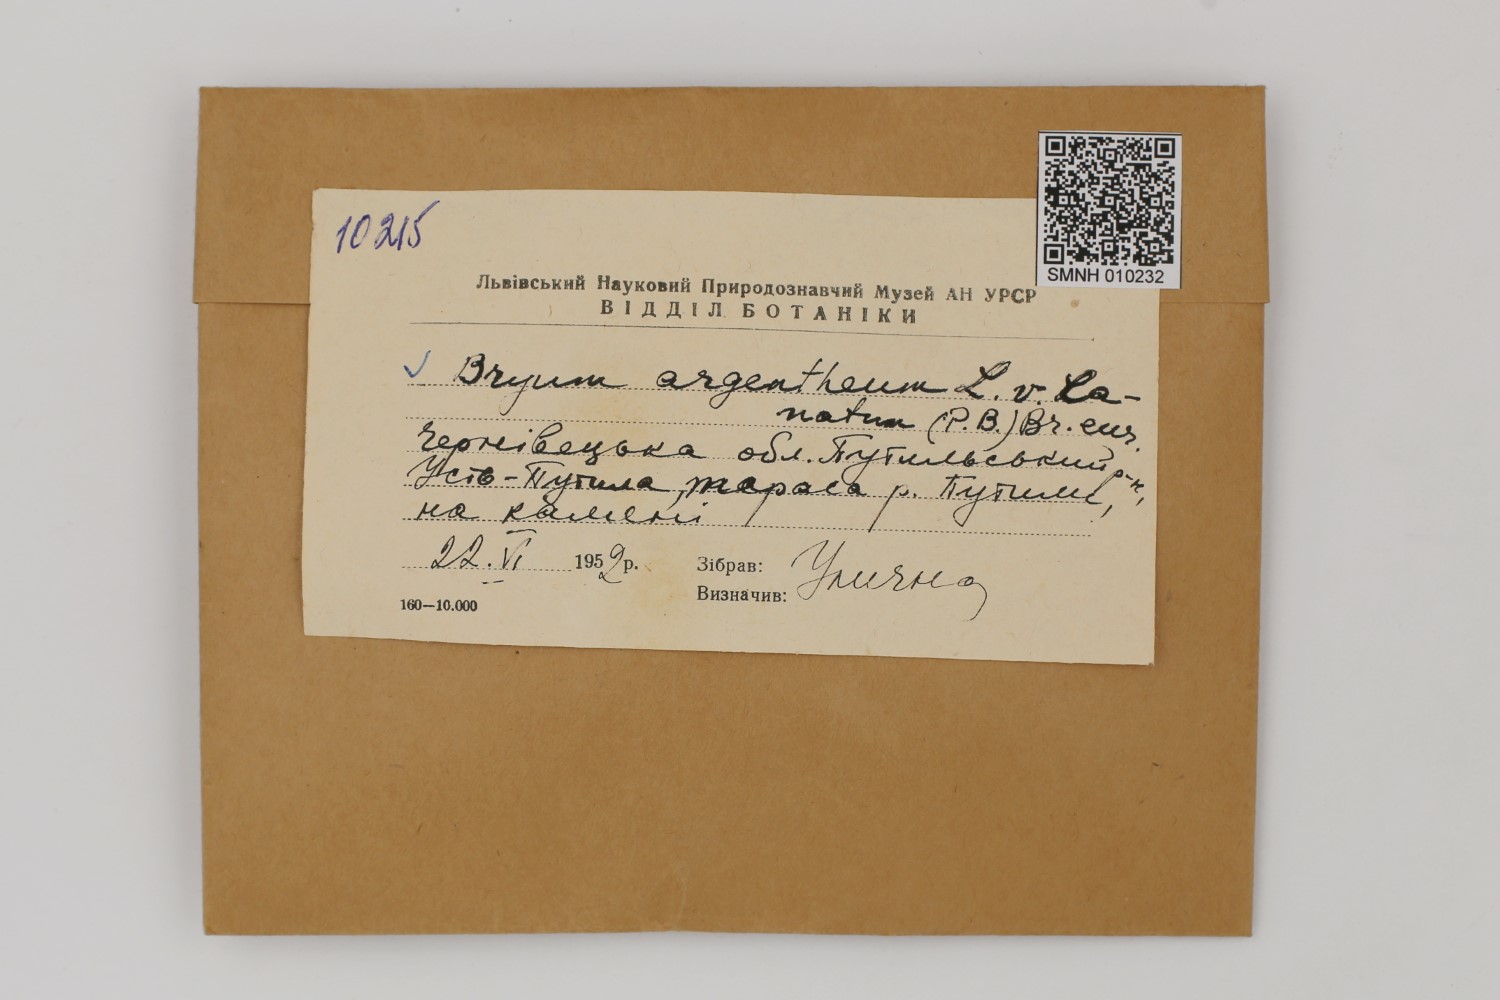 10215
SMNH 010232
Львівський Науковий Природознавчий Музей АН УРСР
ВІДДІЛ БОТАНІКИ
Bryum argentheum L. v. La-
natum (P.B.) Br. eur.
Чернівецька обл. Путильський р-н,
Усть-Путила, тераса р. Путили,
на камені
22. VI 1952 р.
Зібрав: Улична
Визначив:
160—10.000